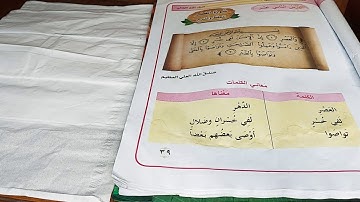 وَالْعَصْرِ ۝ إِنَّ الْإِنسَانَ لَفِي خُسْرٍ ۝
إِلَّا الَّذِينَ آمَنُوا وَعَمِلُوا الصَّالِحَاتِ وَتَوَاصَوْا بِالْحَقِّ
وَتَوَاصَوْا بِالصَّبْرِ ۝
صدق الله العلي العظيم
معاني الكلمات
الكلمة معناها
العَصْر الدَّهْر
لفي خُسْر لفي خُسْران وضلال
تواصَوا أوْصَى بَعْضُهم بَعْضاً
٣٩